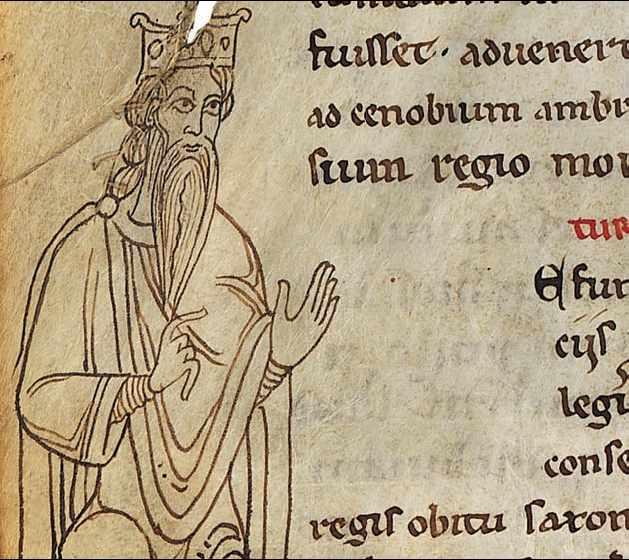 fuisset · aduener
ad cenobium ambr
suum regio mo
tur
E fun
cijs
legi
conse
regis obitu saxon